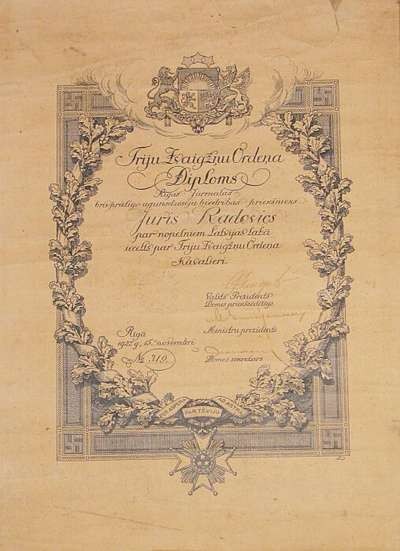 Triju Zvaigžņu Ordeņa
Diploms
Rīgas Jūrmalas
brīvprātīgo ugunsdzēsēju biedrības priekšnieks
Juris Radosics
par nopelniem Latvijas labā
iecelts par Triju Zvaigžņu Ordeņa
Kavalieri.
Valsts Prezidents
Domes priekšsēdētājs
Ministru prezidents
Rīgā
1927 g. 15. novembrī
№ 310
Domes sekretārs
PAR TĒVIJU